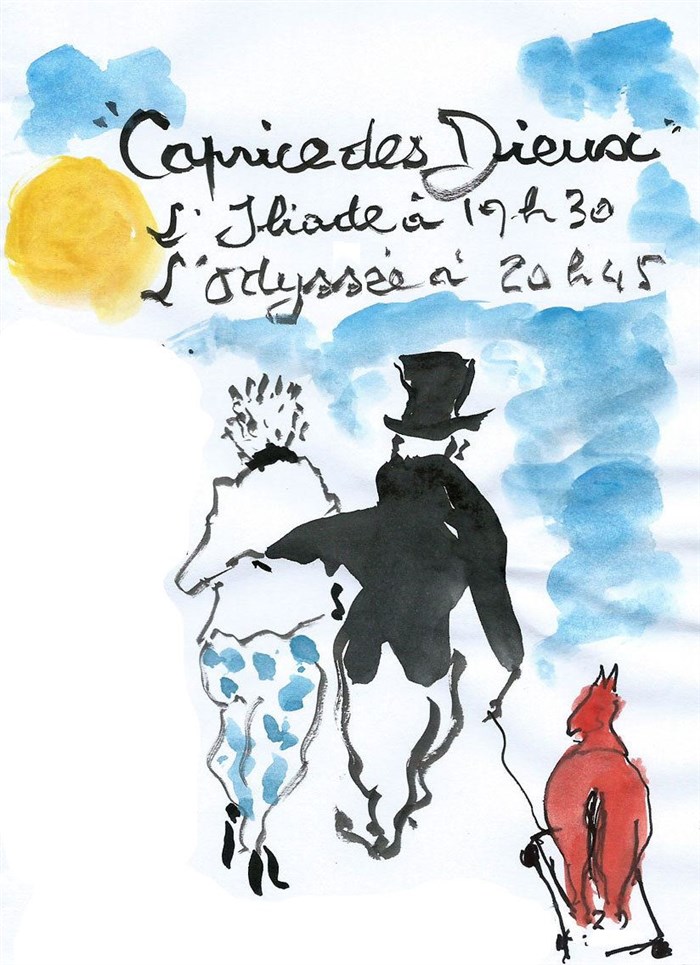 "Caprice des Dieux"
L'Iliade à 19h30
L'Odyssée à 20h45